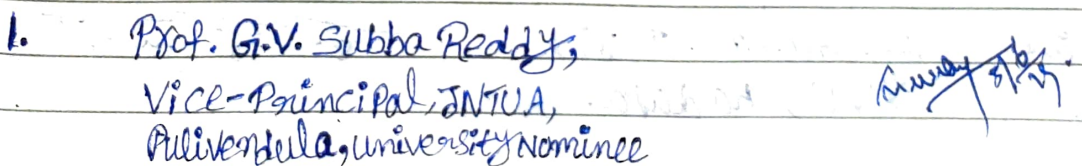 1. Prof. G.V. Subba Reddy,
Vice-Principal, JNTUA,
Pulivendula, University Nominee